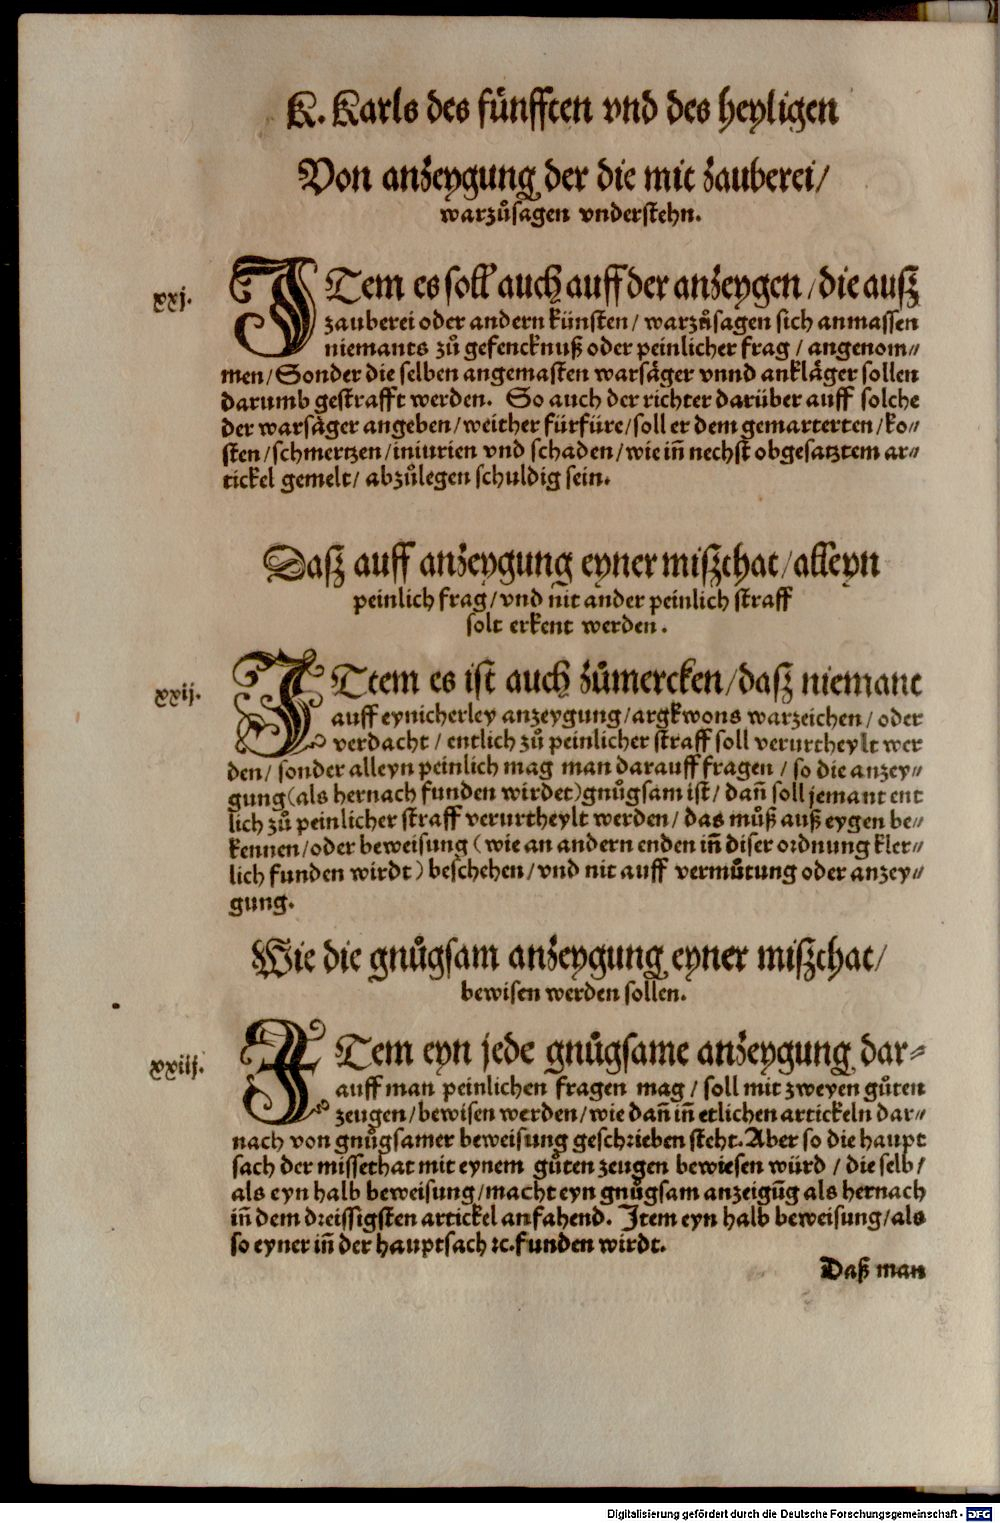 K. Karls des fünfften vnd des heyligen
Von anzeygung der die mit zauberei/
warzůsagen vnderstehn.
xxj.
ITem es soll auch auff der anzeygen/die ausz
zauberei oder andern künsten/ warzůsagen sich anmassen
niemants zů gefencknuß oder peinlicher frag / angenom⸗
men/ Sonder die selben angemasten warsäger vnnd ankläger sollen
darumb gestrafft werden. So auch der richter darüber auff solche
der warsäger angeben/weither fürfüre/soll er dem gemarterten/ko⸗
sten/schmertzen/iniurien vnd schaden/wie iñ nechst obgesatztem ar⸗
tickel gemelt/ abzůlegen schuldig sein.
Dasz auff anzeygung eyner miszthat/alleyn
peinlich frag/vnd nit ander peinlich straff
solt erkent werden.
xxij.
ITtem es ist auch zůmercken/dasz niemant
auff eynicherley anzeygung/argkwons warzeichen/ oder
verdacht / entlich zů peinlicher straff soll verurtheylt wer
den/ sonder alleyn peinlich mag man darauff fragen / so die anzey⸗
gung(als hernach funden wirdet)gnůgsam ist/ dañ soll jemant ent
lich zů peinlicher straff verurtheylt werden/ das můß auß eygen be⸗
kennen/oder beweisung (wie an andern enden iñ diser ordnung kler⸗
lich funden wirdt) beschehen/vnd nit auff vermůtung oder anzey⸗
gung.
Wie die gnůgsam anzeygung eyner miszthat/
bewisen werden sollen.
xxiij.
ITem eyn jede gnůgsame anzeygung dar⸗
auff man peinlichen fragen mag / soll mit zweyen gůten
zeugen/bewisen werden/wie dañ iñ etlichen artickeln dar⸗
nach von gnůgsamer beweisung geschrieben steht. Aber so die haupt
sach der missethat mit eynem gůten zeugen bewiesen würd / die selb/
als eyn halb beweisung/macht eyn gnůgsam anzeigūg als hernach
iñ dem dreissigsten artickel anfahend. Item eyn halb beweisung/als
so eyner iñ der hauptsach ⁊c. funden wirdt.
Daß man
Digitalisierung gefördert durch die Deutsche Forschungsgemeinschaft - DFG